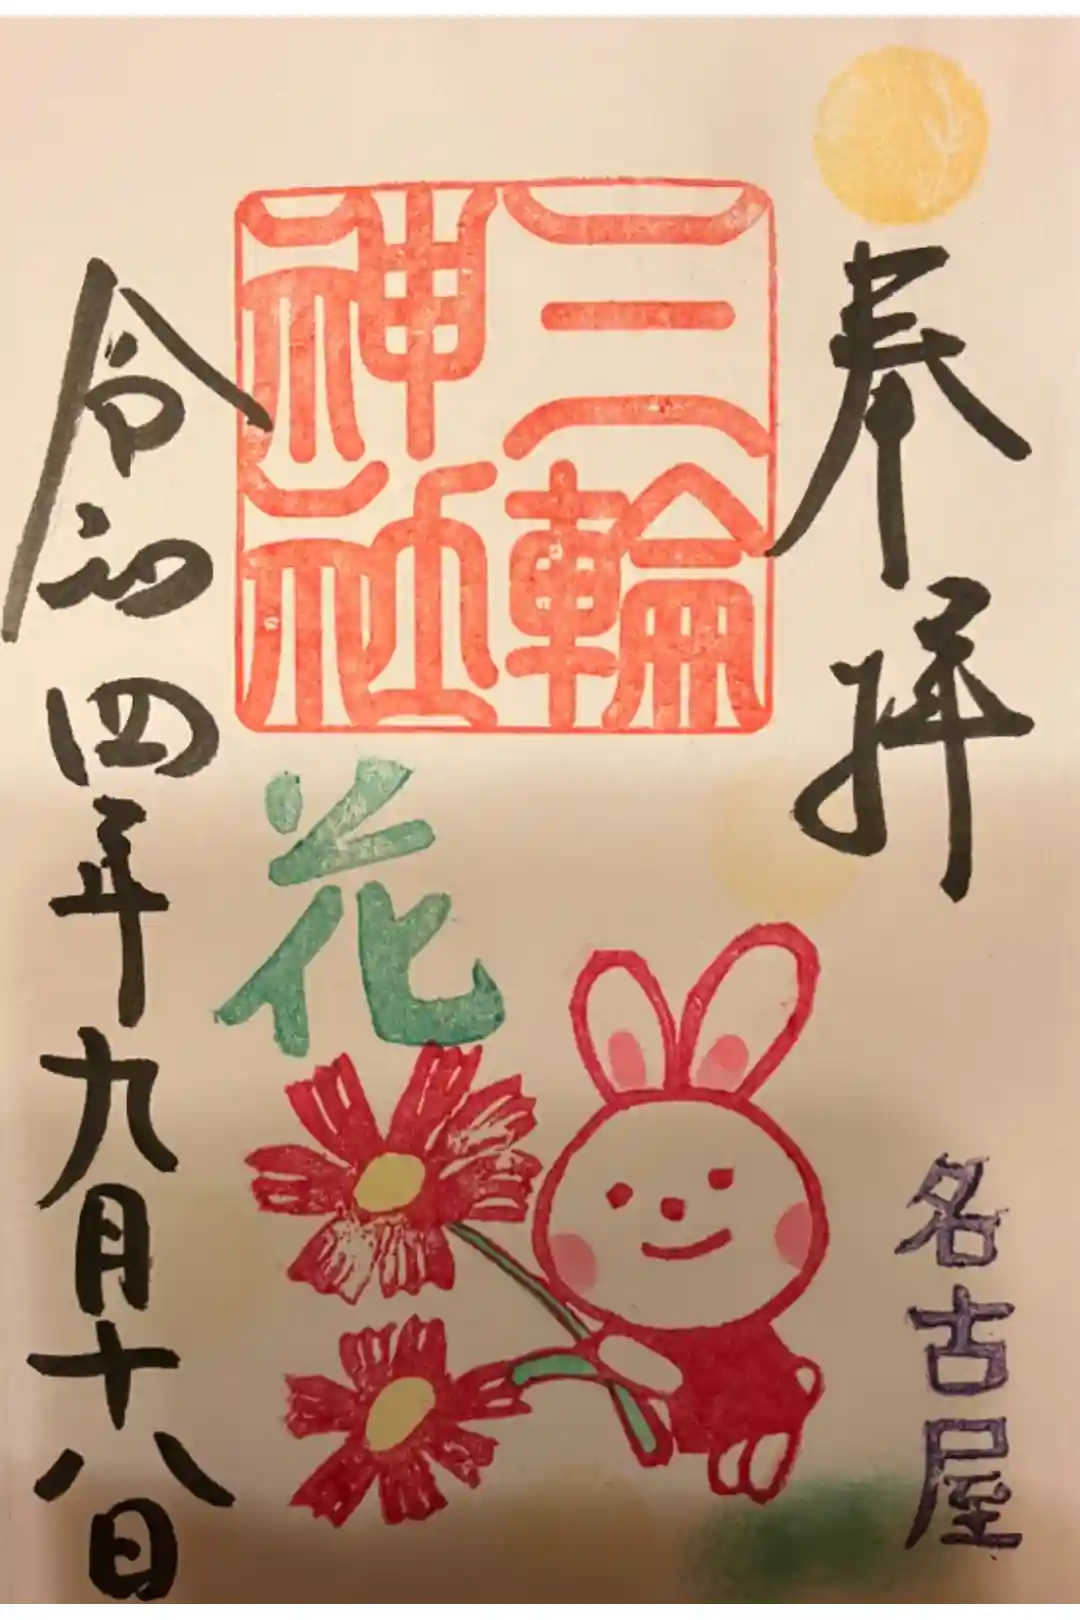 奉拝
名古屋
三輪
神社
花
令和四年九月十八日